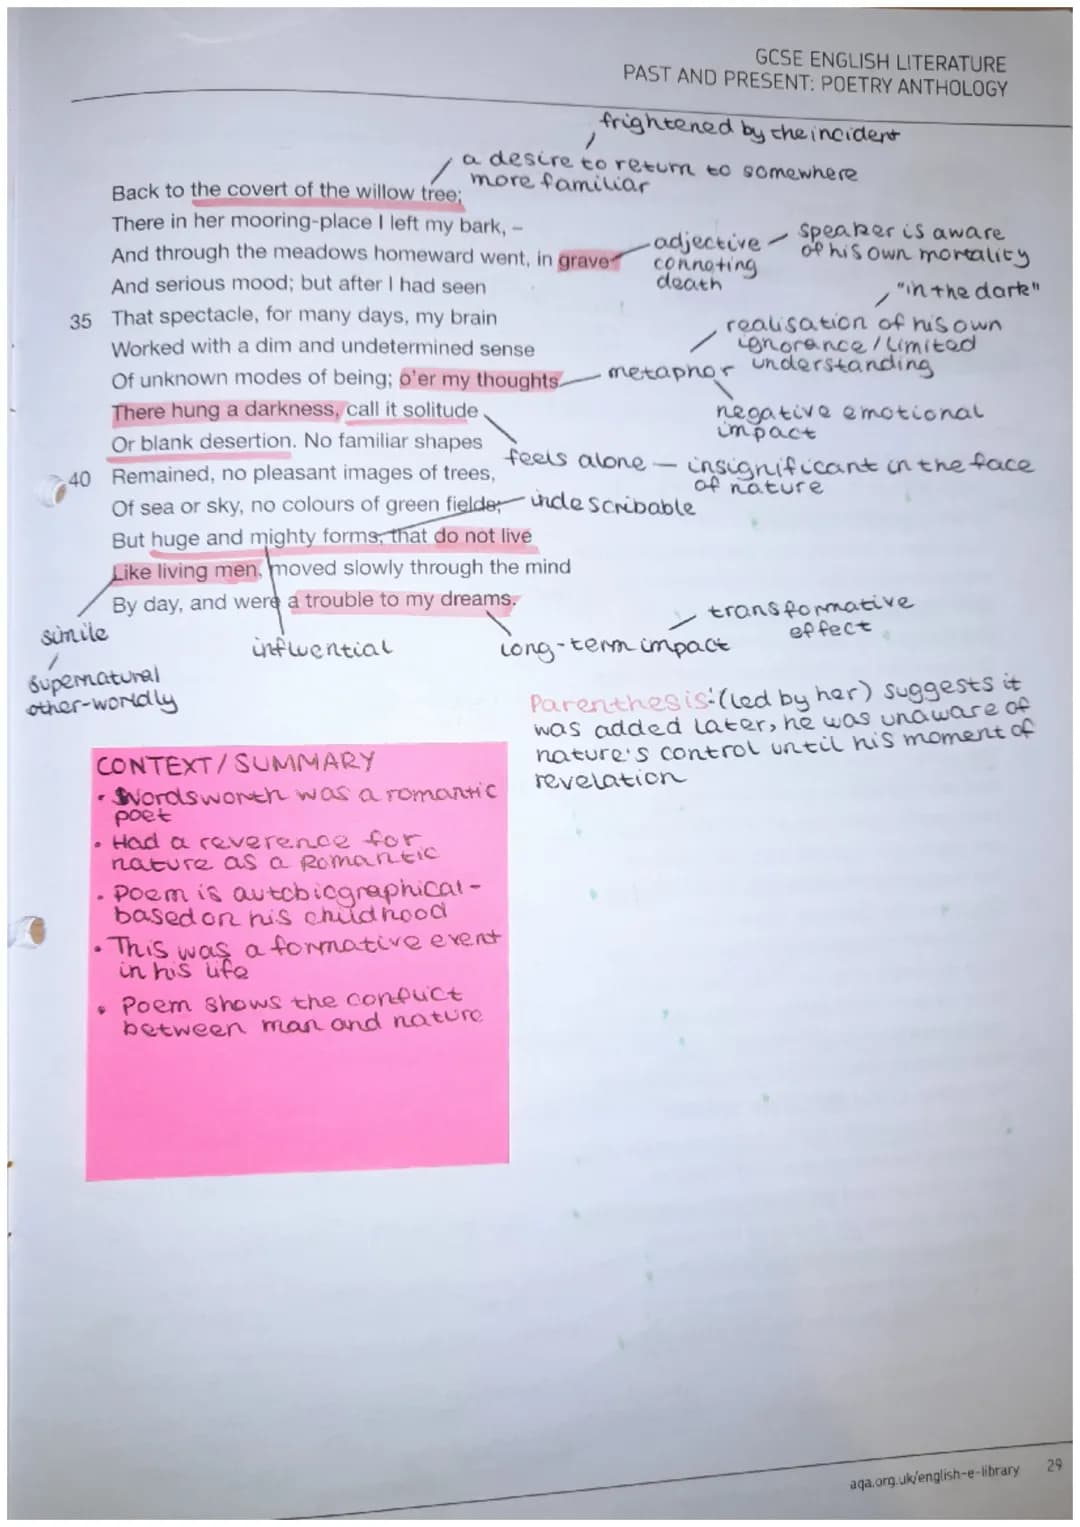 GCSE ENGLISH LITERATURE
PAST AND PRESENT: POETRY ANTHOLOGY
frightened by the incident
a desire to return to somewhere
more familiar
Back to the covert of the willow tree;
There in her mooring-place I left my bark, –
And through the meadows homeward went, in grave
And serious mood; but after I had seen
35 That spectacle, for many days, my brain
Worked with a dim and undetermined sense
Of unknown modes of being; o'er my thoughts
There hung a darkness, call it solitude
Or blank desertion. No familiar shapes
40 Remained, no pleasant images of trees,
Of sea or sky, no colours of green fields;
But huge and mighty forms, that do not live
Like living men, moved slowly through the mind
By day, and were a trouble to my dreams.
adjective
connoting
death
speaker is aware
of his own mortality
"in the dark"
realisation of his own
ignorance / limited
understanding
metaphor
negative emotional
impact
feels alone – insignificant in the face
of nature
indescribable
simile
supernatural
other-worldly
influential
long-term impact
transformative
effect
Parenthesis: (led by her) suggests it
was added later, he was unaware of
nature's control until his moment of
revelation
CONTEXT / SUMMARY
• Wordsworth was a romantic
poet
• Had a reverence for
nature as a Romantic
• Poem is autobiographical -
based on his childhood
• This was a formative event
in his life
• Poem shows the conflict
between man and nature
aqa.org.uk/english-e-library 29